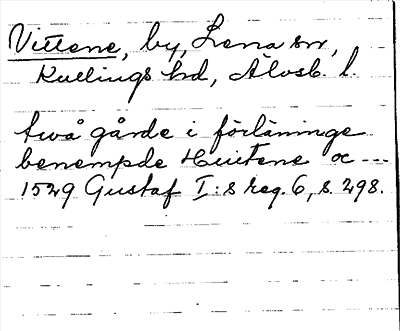 Vittene, by, Lena sn,
Kullings hd, Älvsb. l.
två gårde i förläninge
benempde Huitene oc ---
1529 Gustaf I:s reg. 6, s. 298.